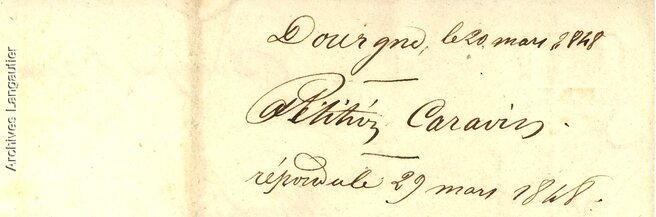 Dourgne, le 20 mars 1848
Pétition Caravin.
répondu le 29 mars 1848.
Archives Langautier